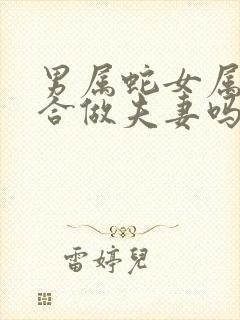 男属蛇女属
合做夫妻吗
雷婷兒